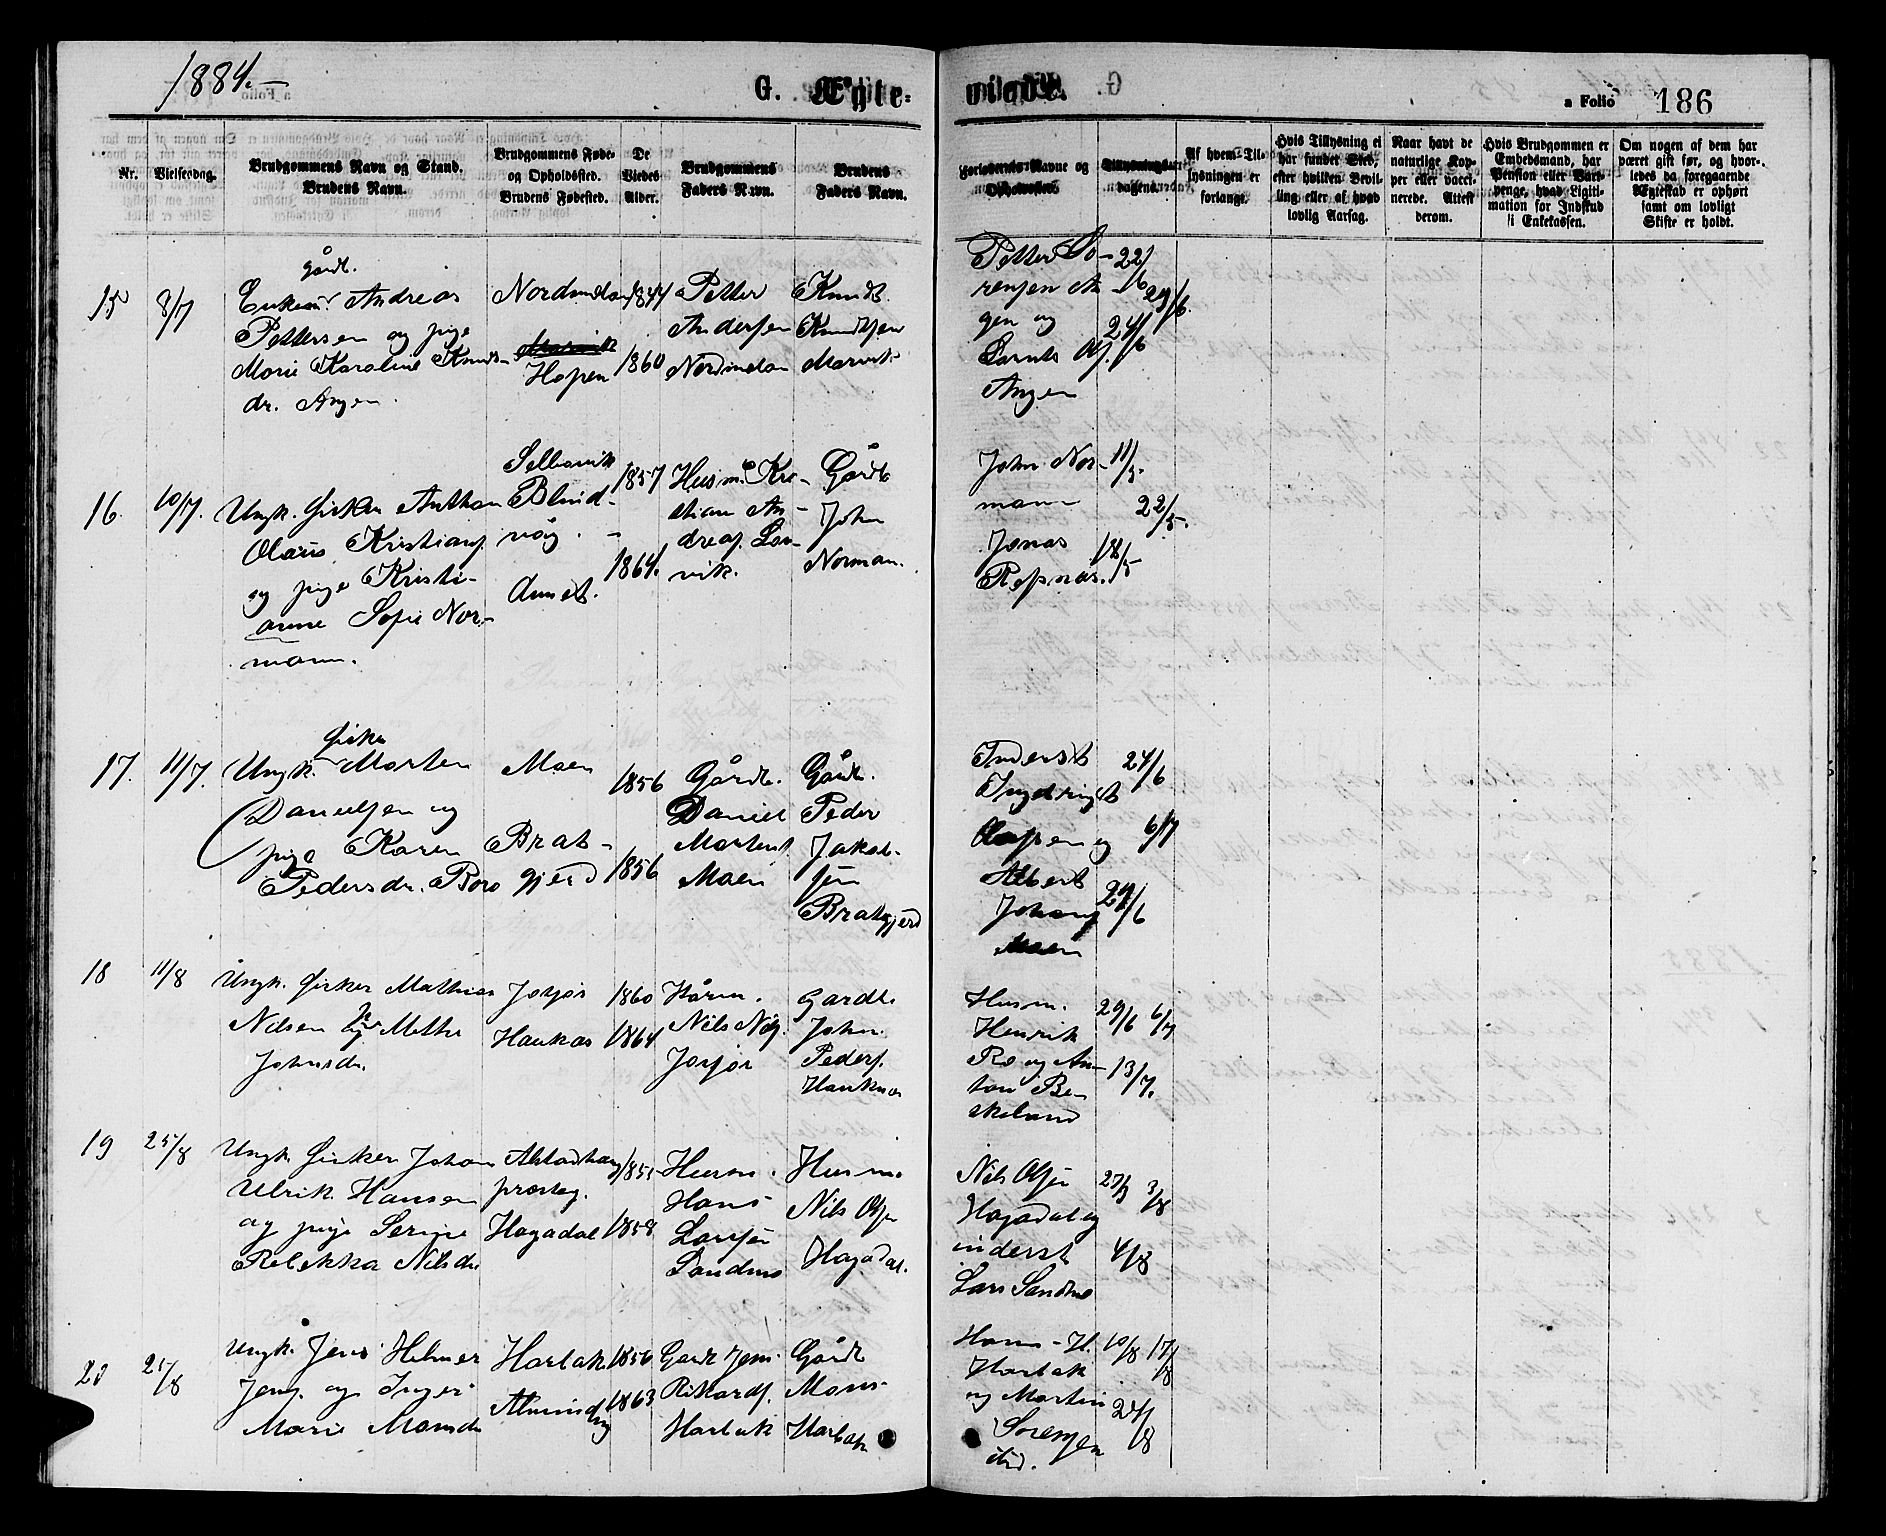 1884.
G. Ægte-
viede.
a Folio 186
Nr.
Vielsesdag.
Brudgommens Navn og Stand.
Brudens Navn.
Brudgommens Føde-
og Opholdssted.
Brudens Fødested.
De
Viedes
Alder.
Brudgommens
Faders Navn.
Brudens
Faders Navn.
Forlovernes Navne og
Opholdssted.
Tillysnings-
dagene.
Af hvem Til-
lysningen er
forlangt.
Hvis Tillysning ei
har fundet Sted,
efter hvilken Bevil-
ling eller af hvad
lovlig Aarsag.
Naar havt de
naturlige Kop-
per eller vacci-
nerede. Attest
derom.
Hvis Brudgommen er
Embedsmand, har
Pension eller Vart-
penge, hvad Ligiti-
mation for Indskud
i Enkekassen.
Om nogen af dem har
været gift før, og hvor-
ledes da foregaaende
Ægteskab er ophørt
samt om lovligt
Skifte er holdt.
15 8/7
gårdb.
Enkem. Andreas
Pettersen og pige
Marie Karoline Knuds-
dr. Angen.
Hopen
1844
1860
Petter
Andersen
Knudt
Knudtsen
Petter So-
rensen An-
gen og
Angen
22/6
29/6.
24/6
16. 10/7.
Ungk. fisker Anthon
Olaus Kristians.
og pige Kristi-
anne Sofie Nor-
mann.
Selsøvik
Blind-
våg.
1857
1864.
Husm. Kri-
stian An-
dreas.
vik.
Gårdb
John
Norman.
John Nor-
mann
Jonas
11/5.
22/5.
18/5
17. 11/7.
fisker
Ungk. Morten
Danielsen og
pige Karen
Pedersdr. Boro
Moen
Brat-
gjerd
1856
1856
Gårdb.
Daniel
Mortens.
Moen
Gårdb.
Peder
Jakob-
sen
Bratgjerd
Inderst
Ingebrigt
og
Albert
Johans.
Moen
24/6
6/7
24/6
18 11/8
Ungk. fisker Mathias
Nilsen og Methe
Johnsdr.
Haukås
1860
1864
Nils
Gårdb.
John
Peders.
Husm.
Henrik
Ro og An-
ton Be-
skeland
29/6 6/7
13/7.
19 25/8
Ungk. fisker Johan
Ulrik Hansen
og pige Serine
Rebekka Nilsdr
Alstadhaug
præsteg.
Hagadal
1855
1858
Husm.
Hans
Larsen
Sandnes
Husm.
Nils Olsen
Hagadal.
Nils Olsen
Hagadal og
inderst
Lars Sandnes
27/7 3/8
4/8
20 25/8
Ungk. Jens Hilmer
Jens. og Inger
Marie Monsdr
Harbak
1856
1863
Gårdb Jens
Rikards.
Harbak
Gårdb
Mons
Harbak
Hans H.
Harbak
og Martin
Sørensen
ibid.
10/8 17/8
24/8